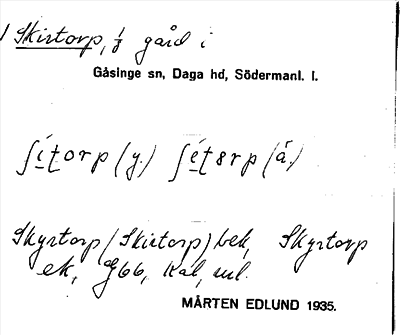 Skirtorp, 1/8 gård i
Gåsinge sn, Daga hd, Södermanl. l.
ʃítorp (y.) ʃétorp (ä.)
Skyrtorp (Skirtorp) bek, Skyrtorp
ek, G66, Kal,
MÅRTEN EDLUND 1935.